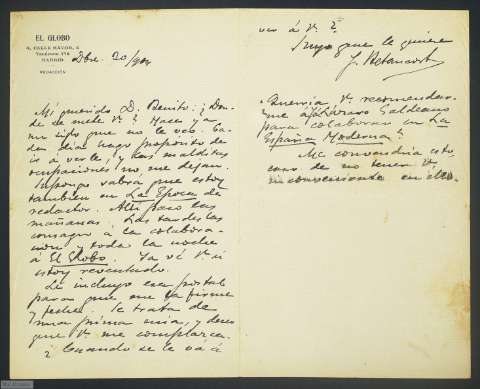 EL GLOBO
4, CALLE MAYOR, 4
MADRID
REDACCIÓN
Dbre. 20/904
Mi querido D. Benito: ¿Don-
de se mete Vd.? Hace ya
un siglo que no le veo. Ca-
da día hago propósito de
ir á verle, y las malditas
ocupaciones no me dejan.
Supongo sabrá que estoy
también en La Epoca de
redactor. Allí paso las
mañanas. Las tardes las
consagro á la colabora-
ción y toda la noche
á El Globo. Ya vé Vd. si
estoy reventado.
Le incluyo esa postal
para que me la firme
y feche. Se trata de
una prima mía, y deseo
que Vd. me complazca.
¿Cuándo se le vá á
ver á Vd.?
Suyo que le quiere
J. Betancort
Querría Vd. recomendar-
me á Lázaro Galdeano
para colaborar en La
España Moderna?
Me convendría esto,
caso de no tener Vd.
inconveniente en ello.